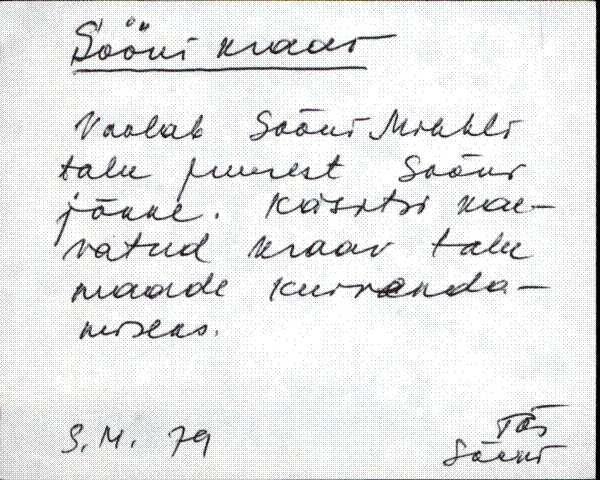 Sööni kraav
Voolab Sööni Mihkli
talu juurest Sööni
jõkke. Käsitsi kae-
vatud kraav talu
maade kuivenda-
miseks.
S.M. 79
Tõs
Sööni